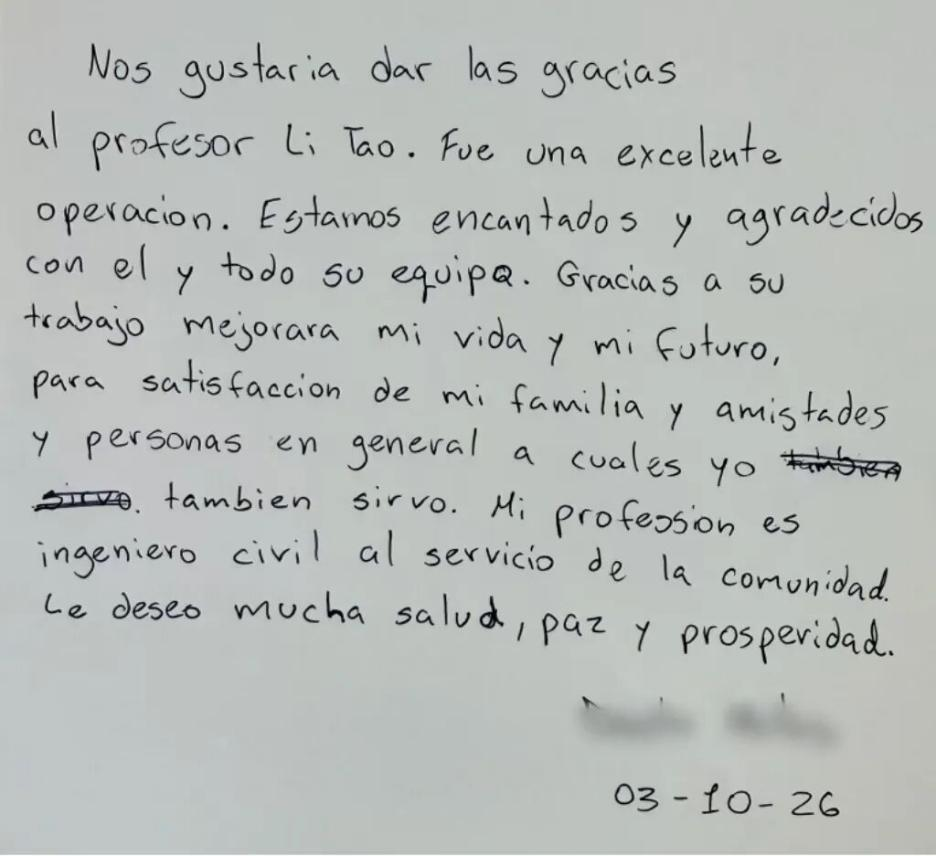 Nos gustaria dar las gracias
al profesor Li Tao. Fue una excelente
operacion. Estamos encantados y agradecidos
con el y todo su equipo. Gracias a su
trabajo mejorara mi vida y mi futuro,
para satisfaccion de mi familia y amistades
y personas en general a cuales yo tambien
sirvo. tambien sirvo. Mi profession es
ingeniero civil al servicio de la comunidad.
Le deseo mucha salud, paz y prosperidad.
03-10-26